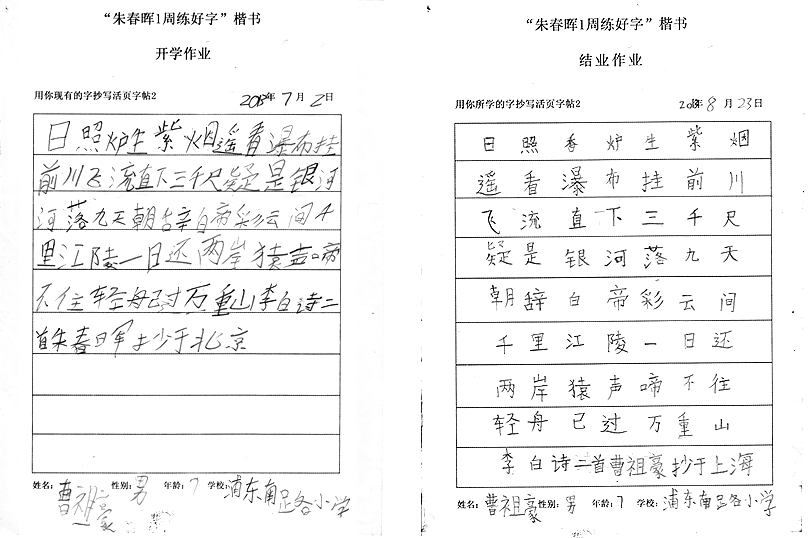 “朱春晖1周练好字”楷书
开学作业
用你现有的字抄写活页字帖2 2013年7月2日
日照炉生紫烟遥看瀑布挂
前川飞流直下三千尺疑是银河
河落九天朝辞白帝彩云间千
里江陵一日还两岸猿声啼
不住轻舟已过万重山李白诗二
首朱春晖抄于北京
姓名：曹祖豪 性别：男 年龄：7 学校：浦东南路小学
“朱春晖1周练好字”楷书
结业作业
用你所学的字抄写活页字帖2 2013年8月23日
日照香炉生紫烟
遥看瀑布挂前川
飞流直下三千尺
疑是银河落九天
朝辞白帝彩云间
千里江陵一日还
两岸猿声啼不住
轻舟已过万重山
李白诗二首曹祖豪抄于上海
姓名：曹祖豪 性别：男 年龄：7 学校：浦东南路小学